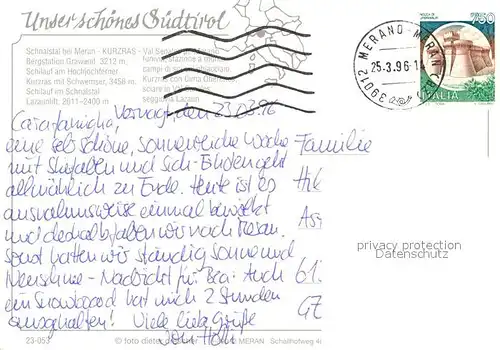 Unser schönes Südtirol
Schnalstal bei Meran - KURZRAS - Val Senales
Bergstation Grawand 3212 m,
Schilauf am Hochjochferner
Kurzras mit Schwemser, 3456 m
Schilauf im Schnalstal
Lazaunlift, 2011-2400 m
750
ITALIA
39012 MERANO MERAN
25.3.96-1
Vernagt, den 23.03.96
Cara famiglia,
eine sehr schöne, sonnenreiche Woche
mit Skifahren und Sich-Erholen geht
allmählich zu Ende. Heute ist es
ausnahmsweise einmal bewölkt
und deshalb fahren wir nach Meran.
Sonst hatten wir ständig Sonne und
Neuschnee - Nachricht für Bea: Auch
ein Snowboard hat mich 2 Stunden
ausgehalten! Viele liebe Grüße
Familie
privacy protection
Datenschutz
61
23-053
© foto dieter MERAN Schallhofweg